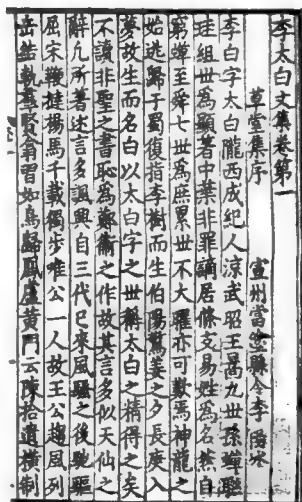 李太白文集卷第一
草堂集序 宣州當塗縣令李陽冰
李白字太白隴西成紀人涼武昭王暠九世孫蟬聯
珪組世為顯著中葉非罪謫居條支易姓為名然自
窮蟬至舜七世為庶累世不大曜亦可歎焉神龍之
始逃歸于蜀復指李樹而生伯陽驚姜之夕長庚入
夢故生而名白以太白字之世稱太白之精得之矣
不讀非聖之書恥為鄭衛之作故其言多似天仙之
辭凡所著述言多諷興自三代已來風騷之後馳驅
屈宋鞭撻楊馬千載獨步唯公一人故王公趨風列
岳結軌羣賢翕習如鳥歸鳳盧黃門云陳拾遺橫制